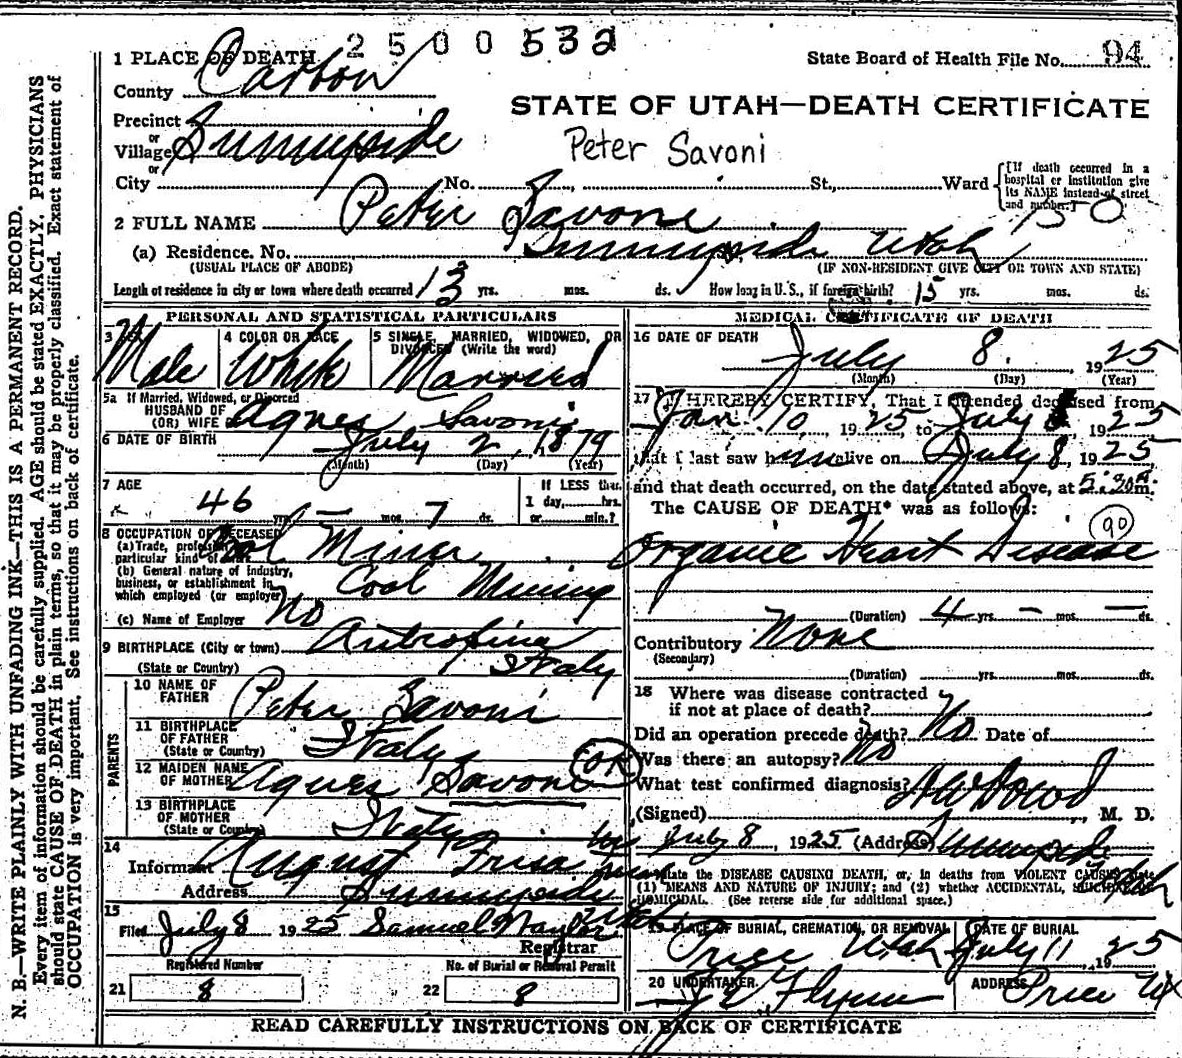 2500532
1 PLACE OF DEATH
State Board of Health File No. 94
County Carbon
STATE OF UTAH—DEATH CERTIFICATE
Precinct
or
Village Sunnyside
Peter Savoni
or
City No. St., Ward
[If death occurred in a
hospital or institution give
its NAME instead of street
and number.]
150
2 FULL NAME Peter Savoni
(a) Residence. No. Sunnyside Utah
(USUAL PLACE OF ABODE) (IF NON-RESIDENT GIVE CITY OR TOWN AND STATE)
Length of residence in city or town where death occurred 13 yrs. mos. ds. How long in U.S., if foreign birth? 15 yrs. mos. ds.
PERSONAL AND STATISTICAL PARTICULARS
3 Male
4 COLOR OR RACE White
5 SINGLE, MARRIED, WIDOWED, OR
DIVORCED (Write the word)
Married
5a If Married, Widowed, or Divorced
HUSBAND OF
(OR) WIFE Agnes Savoni
6 DATE OF BIRTH July 2, 1879
(Month) (Day) (Year)
7 AGE
46 yrs — mos. 7 ds.
If LESS than
1 day, hrs.
or min.?
8 OCCUPATION OF DECEASED
(a) Trade, profession
particular kind of Coal Miner
(b) General nature of industry,
business, or establishment in
which employed (or employer) Coal Mining
(c) Name of Employer No
9 BIRTHPLACE (City or town)
(State or Country) Italy
PARENTS
10 NAME OF
FATHER Peter Savoni
11 BIRTHPLACE
OF FATHER
(State or Country) Italy
12 MAIDEN NAME
OF MOTHER Agnes Savoni OK
13 BIRTHPLACE
OF MOTHER
(State or Country) Italy
14
Informant August Frisa
Address Sunnyside Utah
15
Filed July 8 1925 Samuel Naylor
Registrar
Registered Number
21 8
No. of Burial or Removal Permit
22 8
MEDICAL CERTIFICATE OF DEATH
16 DATE OF DEATH
July 8. 1925
(Month) (Day) (Year)
17 I HEREBY CERTIFY, That I attended deceased from
Jan. 10, 1925 to July 1925
that I last saw him alive on July 8, 1925
and that death occurred, on the date stated above, at 5:30 A m.
The CAUSE OF DEATH* was as follows:
90
Organic Heart Disease
(Duration) 4 yrs. — mos. — ds.
Contributory None
(Secondary)
(Duration) yrs. mos. ds.
18 Where was disease contracted
if not at place of death?
Did an operation precede death? No Date of
Was there an autopsy? No
What test confirmed diagnosis?
(Signed) , M. D.
July 8, 1925 (Address) Sunnyside Utah
state the DISEASE CAUSING DEATH, or, in deaths from VIOLENT CAUSES, state
(1) MEANS AND NATURE OF INJURY; and (2) whether ACCIDENTAL, SUICIDAL
HOMICIDAL. (See reverse side for additional space.)
19 PLACE OF BURIAL, CREMATION, OR REMOVAL
Price Utah
DATE OF BURIAL
July 11, 1925
20 UNDERTAKER Flynn
ADDRESS Price Ut
READ CAREFULLY INSTRUCTIONS ON BACK OF CERTIFICATE
N. B.—WRITE PLAINLY WITH UNFADING INK—THIS IS A PERMANENT RECORD.
Every item of information should be carefully supplied. AGE should be stated EXACTLY. PHYSICIANS
should state CAUSE OF DEATH in plain terms, so that it may be properly classified. Exact statement of
OCCUPATION is very important. See instructions on back of certificate.